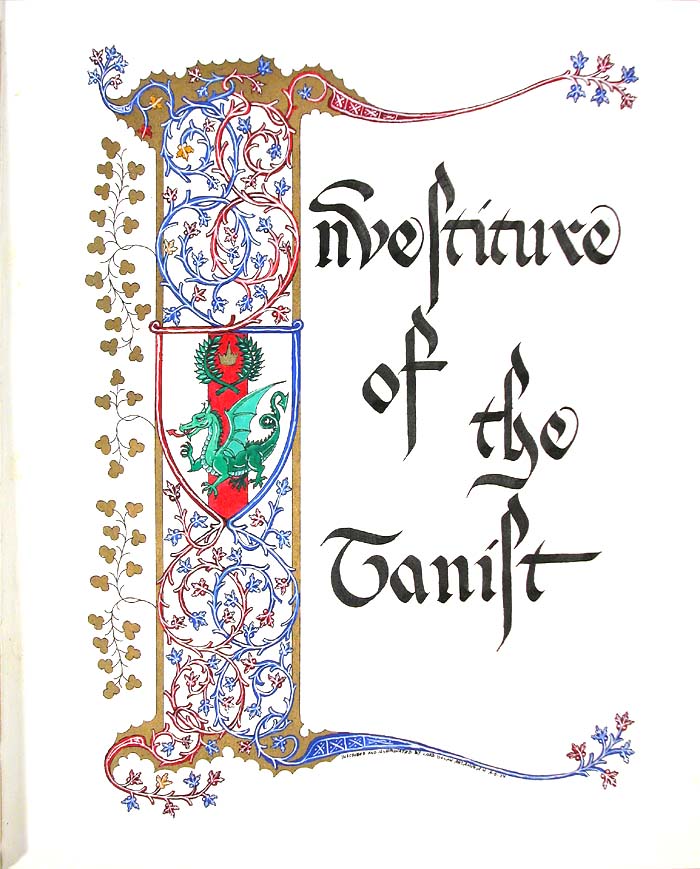 Investiture
of
the
Tanist
INSCRIBED AND ILLUMINATED BY LORD